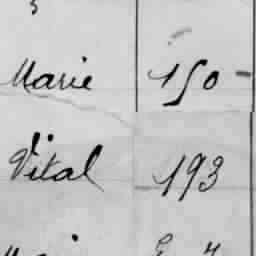 Marie 150
Vital 193